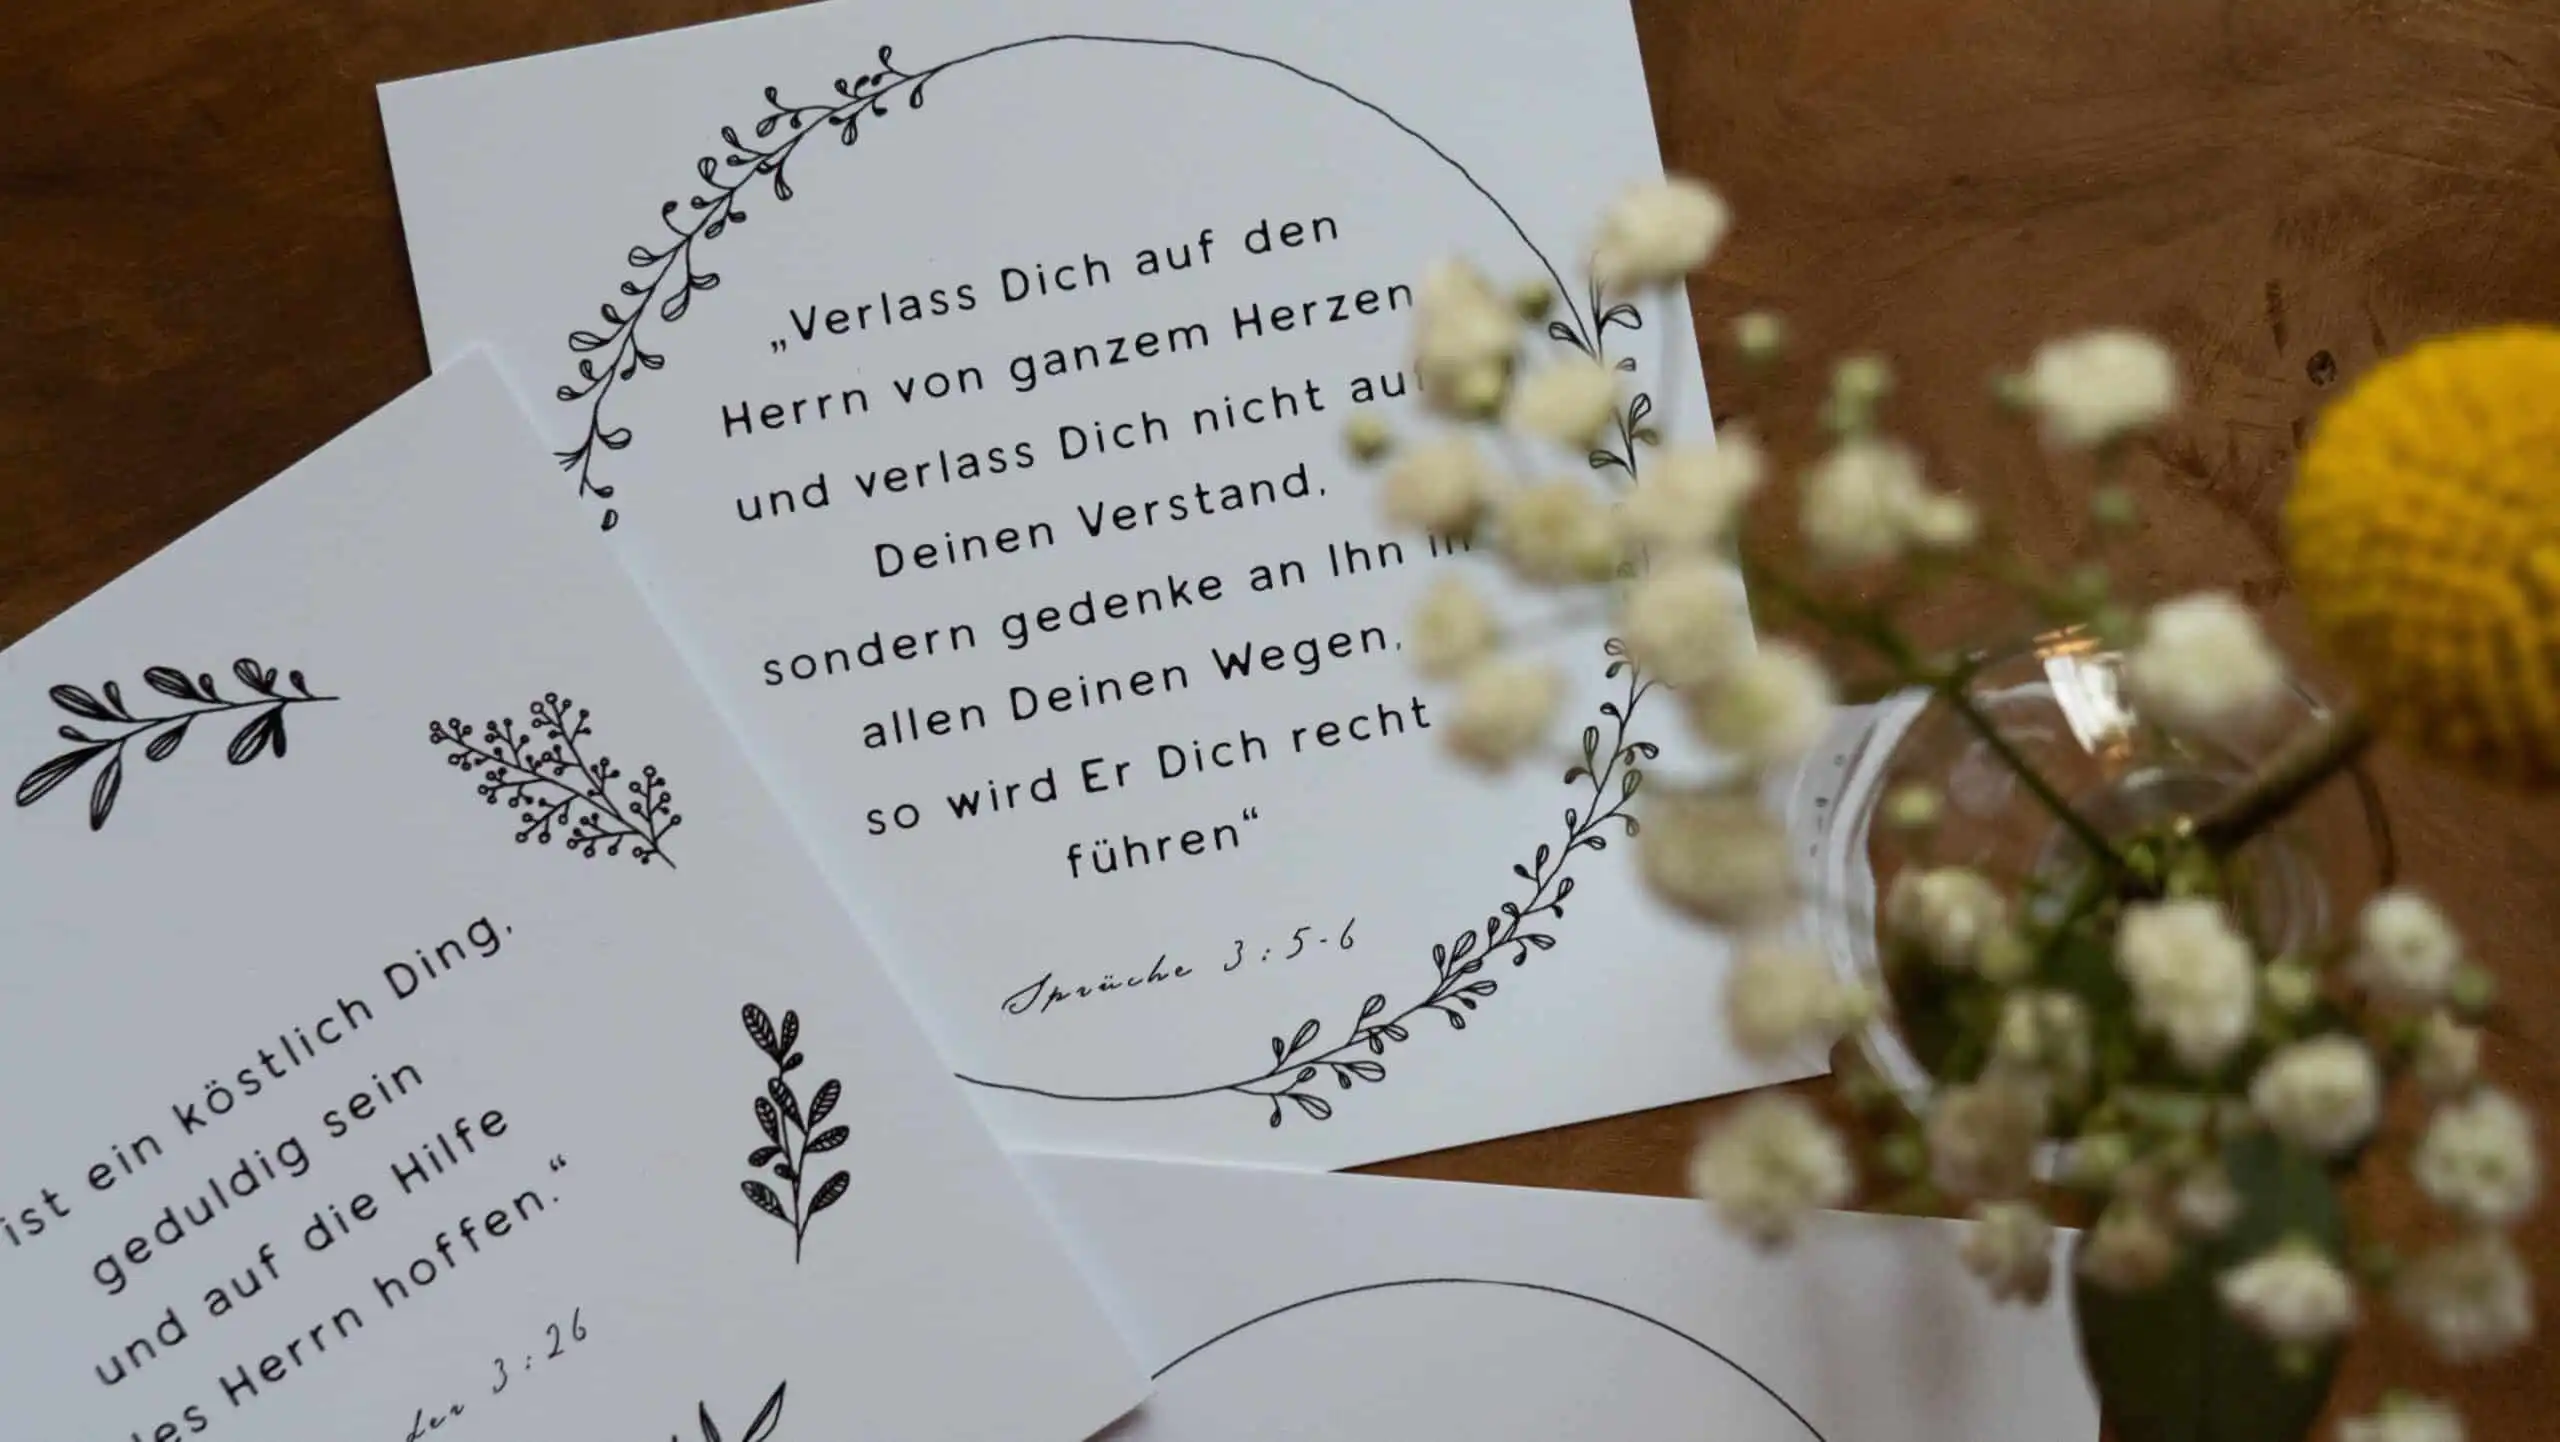 „Verlass Dich auf den
Herrn von ganzem Herzen
und verlass Dich nicht
Deinen Verstand,
sondern gedenke an Ihn
allen Deinen Wegen,
so wird Er Dich recht
führen“
Sprüche 3:5-6
ist ein köstlich Ding,
geduldig sein
und auf die Hilfe
Herrn hoffen.“
3:26